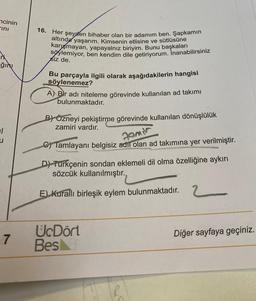 ncinin
rını
16. Her şeyden bihaber olan bir adamım ben. Şapkamın
altında yaşarım. Kimsenin etlisine ve sütlüsüne
karışmayan, yapayalnız biriyim. Bunu başkaları
söylemiyor, ben kendim dile getiriyorum. İnanabilirsiniz
siz de.
Bu parçayla ilgili olarak aşağıdakilerin hangisi
söylenemez?
A) Bir adı niteleme görevinde kullanılan ad takımı
bulunmaktadır.
B) Özneyi pekiştirme görevinde kullanılan dönüşlülük
zamiri vardır.
zamir
C) Tamlayanı belgisiz adıl olan ad takımına yer verilmiştir.
D) Türkçenin sondan eklemeli dil olma özelliğine aykırı
sözcük kullanılmıştır.
E) Kurallı birleşik eylem bulunmaktadır. 2
7
ÜçDört
Beş
Diğer sayfaya geçiniz.